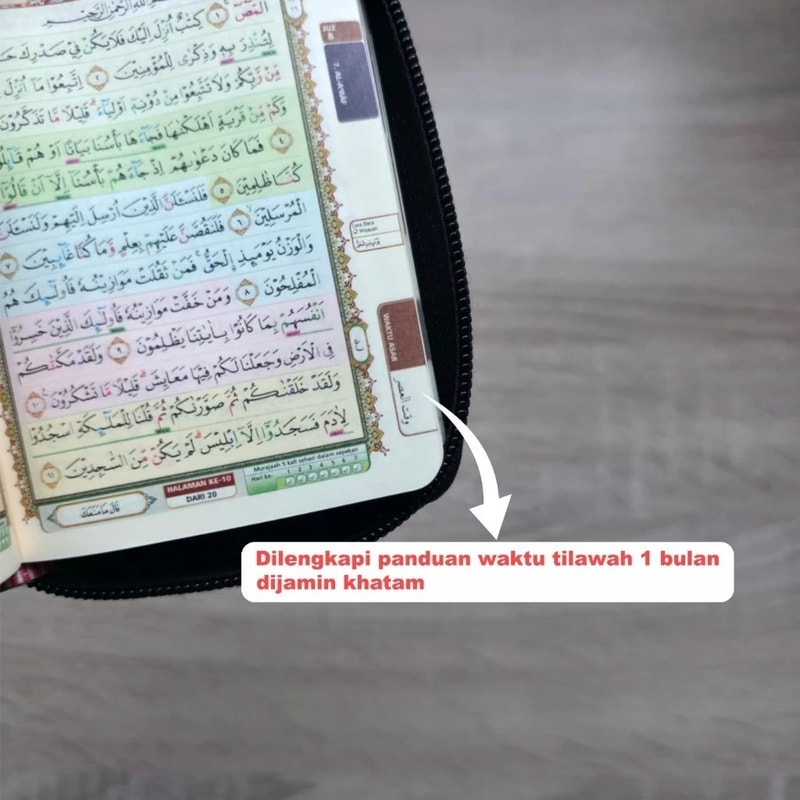 المص ١ كِتٰبٌ اُنْزِلَ اِلَيْكَ فَلَا يَكُنْ فِيْ صَدْرِكَ
لِتُنْذِرَ بِهٖ وَذِكْرٰى لِلْمُؤْمِنِيْنَ ٢ اِتَّبِعُوْا مَآ اُنْزِلَ
مِّنْ رَّبِّكُمْ وَلَا تَتَّبِعُوْا مِنْ دُوْنِهٖٓ اَوْلِيَآءَۗ قَلِيْلًا مَّا تَذَكَّرُوْنَ
وَكَمْ مِّنْ قَرْيَةٍ اَهْلَكْنٰهَا فَجَآءَهَا بَأْسُنَا بَيَاتًا اَوْ هُمْ
٤ فَمَا كَانَ دَعْوٰىهُمْ اِذْ جَآءَهُمْ بَأْسُنَآ اِلَّآ اَنْ قَالُوْٓا
كُنَّا ظٰلِمِيْنَ ٥ فَلَنَسْـَٔلَنَّ الَّذِيْنَ اُرْسِلَ اِلَيْهِمْ وَلَنَسْـَٔلَنَّ
الْمُرْسَلِيْنَ ٦ فَلَنَقُصَّنَّ عَلَيْهِمْ بِعِلْمٍ وَّمَا كُنَّا غَآىِٕبِيْنَ ٧
وَالْوَزْنُ يَوْمَىِٕذِ ِۨالْحَقُّۚ فَمَنْ ثَقُلَتْ مَوَازِيْنُهٗ فَاُولٰۤىِٕكَ هُمُ
الْمُفْلِحُوْنَ ٨ وَمَنْ خَفَّتْ مَوَازِيْنُهٗ فَاُولٰۤىِٕكَ الَّذِيْنَ خَسِرُوْٓا
اَنْفُسَهُمْ بِمَا كَانُوْا بِاٰيٰتِنَا يَظْلِمُوْنَ ٩ وَلَقَدْ مَكَّنّٰكُمْ
فِى الْاَرْضِ وَجَعَلْنَا لَكُمْ فِيْهَا مَعَايِشَۗ قَلِيْلًا مَّا تَشْكُرُوْنَ ١٠
وَلَقَدْ خَلَقْنٰكُمْ ثُمَّ صَوَّرْنٰكُمْ ثُمَّ قُلْنَا لِلْمَلٰۤىِٕكَةِ اسْجُدُوْا
لِاٰدَمَ فَسَجَدُوْٓا اِلَّآ اِبْلِيْسَۗ لَمْ يَكُنْ مِّنَ السّٰجِدِيْنَ ١١
JUZ
8
7. AL-A'RAF
WAKTU ASAR
وقت العصر
Murajaah 5 kali sehari dalam sepekan
Hari ke: 1 2 3 4 5 6 7
HALAMAN KE-10
DARI 20
قَالَ مَا مَنَعَكَ
Dilengkapi panduan waktu tilawah 1 bulan
dijamin khatam